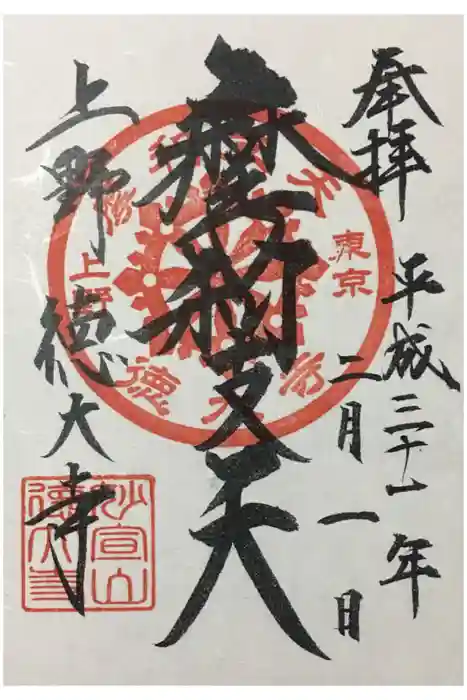 奉拝
平成三十一年
二月一日
摩利支天
上野徳大寺
東京
上野
妙宣山
徳大寺